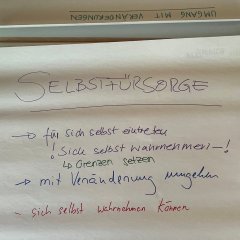 UMGANG MIT VERÄNDERUNGEN
SELBSTFÜRSORGE
→ für sich selbst eintreten
! Sich selbst wahrnehmen – !
↳ Grenzen setzen
→ mit Veränderung umgehen
- sich selbst wahrnehmen können